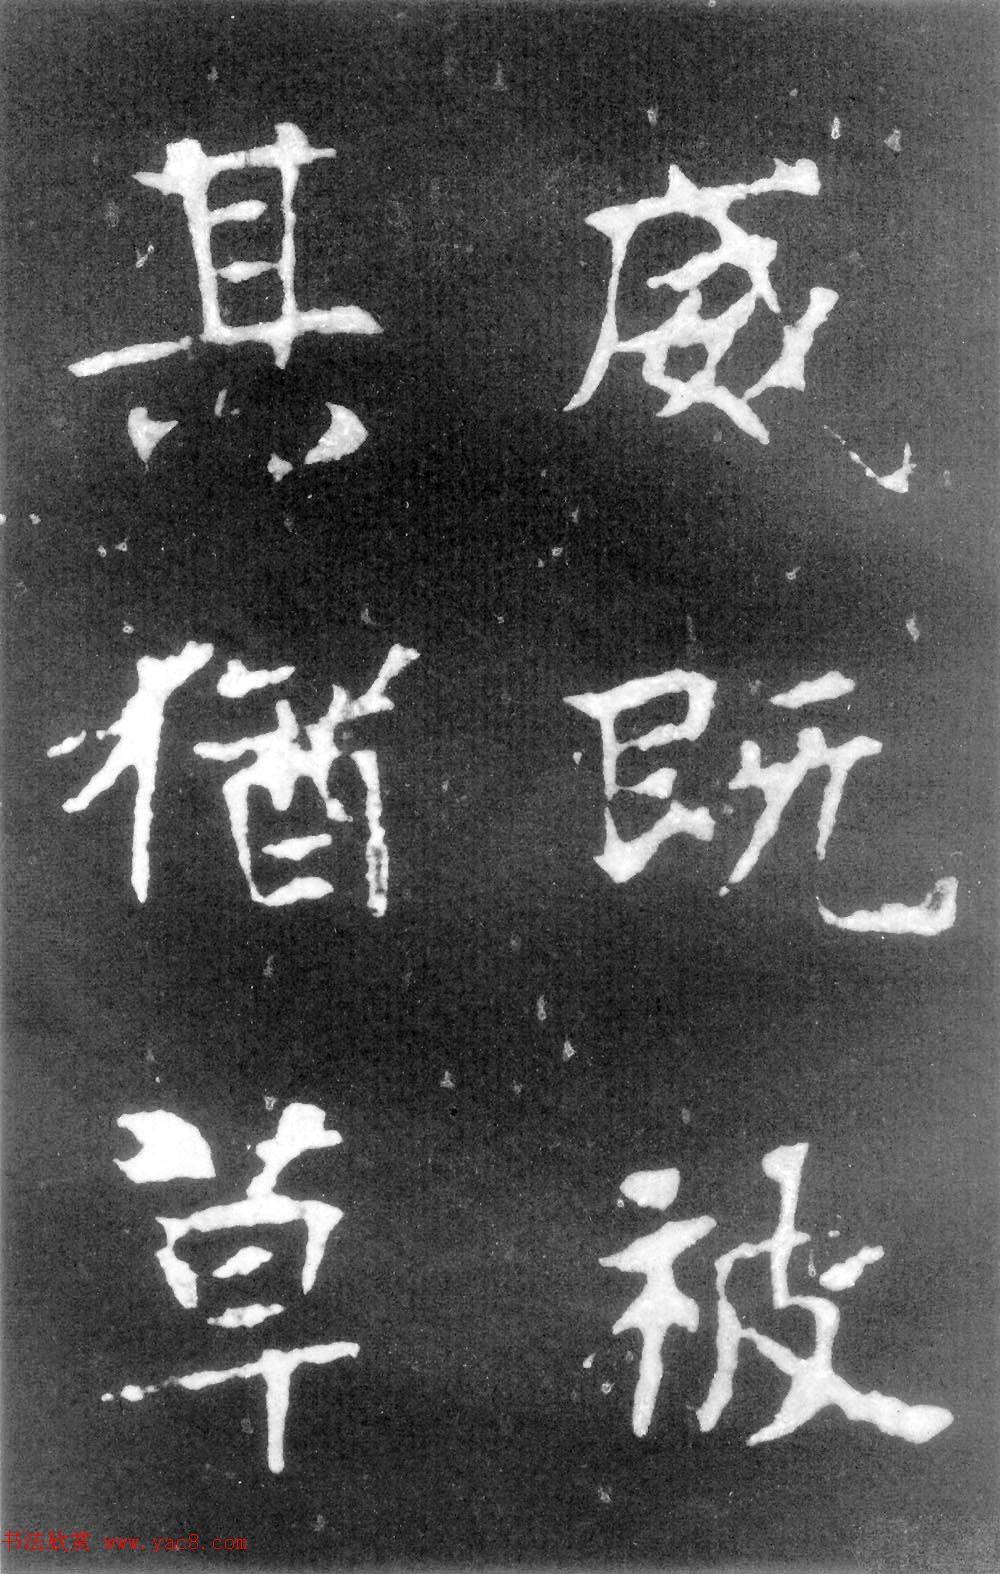 威既被
其猶草
书法欣赏 www.yac8.com